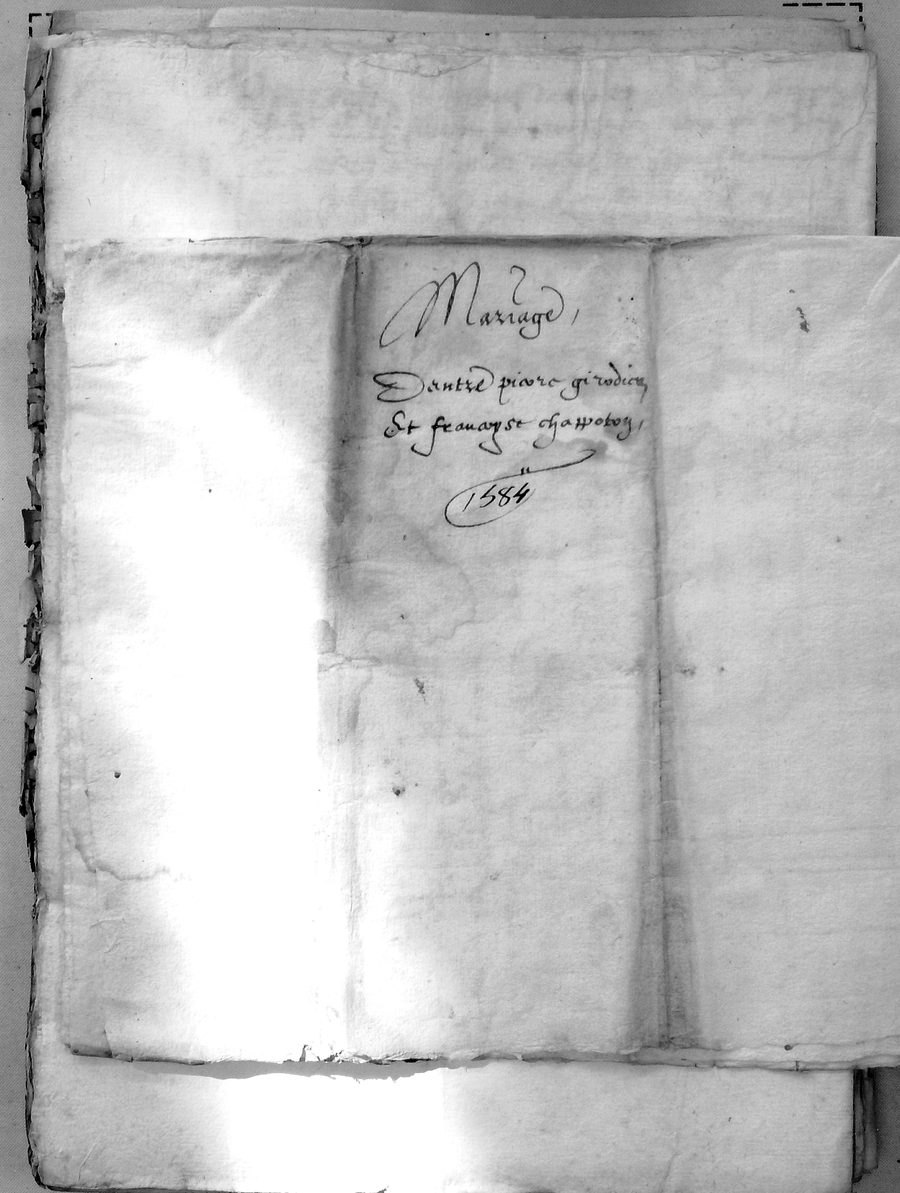 Mariage,
Dentre pierre girodier
Et francoyse chappoton,
1584